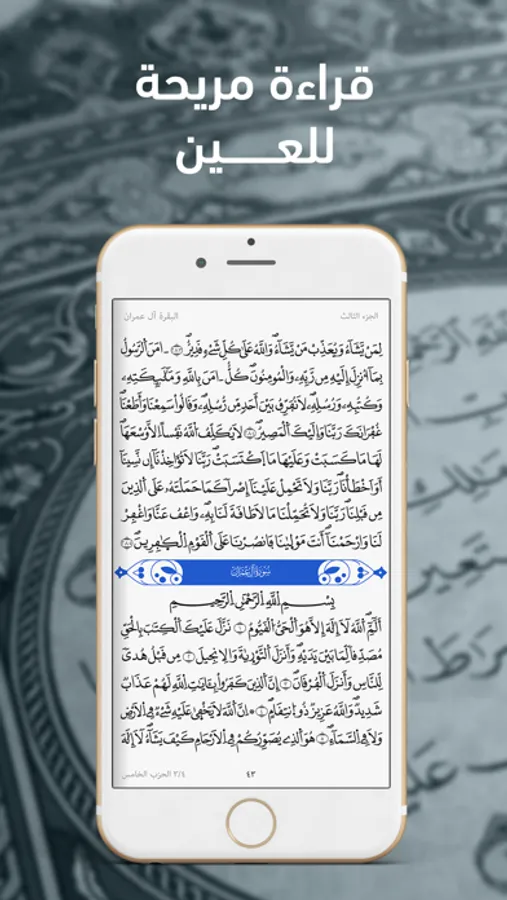 قراءة مريحة
للعـــين
الجزء الثالث
البقرة آل عمران
لِمَنْ يَّشَآءُ وَيُعَذِّبْ مَنْ يَّشَآءُ وَاللَّهُ عَلَىٰ كُلِّ شَےْءٍ قَدِيرٌ ـامَنَ اَلرَّسُولُ
بِمَآ أُنزِلَ إِلَيْهِ مِن رَّبِّهِۦ وَالْمُومِنُونَ كُلٌّ ـامَنَ بِاللَّهِ وَمَلَٰٓئِكَتِهِۦ
وَكُتُبِهِۦ وَرُسُلِهِۦ لَا نُفَرِّقُ بَيْنَ أَحَدٍ مِّن رُّسُلِهِۦ وَقَالُواْ سَمِعْنَا وَأَطَعْنَا
غُفْرَانَكَ رَبَّنَا وَإِلَيْكَ اَلْمَصِيرُ لَا يُكَلِّفُ اُللَّهُ نَفْساً اِلَّا وُسْعَهَا
لَهَا مَا كَسَبَتْ وَعَلَيْهَا مَا اَكْتَسَبَتْ رَبَّنَا لَا تُوَاخِذْنَآ إِن نَّسِينَآ
أَوَ اَخْطَأْنَا رَبَّنَا وَلَا تَحْمِلْ عَلَيْنَآ إِصْراً كَمَا حَمَلْتَهُۥ عَلَى اَلذِينَ
مِن قَبْلِنَا رَبَّنَا وَلَا تُحَمِّلْنَا مَا لَا طَاقَةَ لَنَا بِهِۦ وَاعْفُ عَنَّا وَاغْفِرْ
لَنَا وَارْحَمْنَآ أَنتَ مَوْلَىٰنَا فَانصُرْنَا عَلَى اَلْقَوْمِ اِلْكَٰفِرِينَ
سُورَةُ آلِ عِمْرَانَ
بِسْمِ اِللَّهِ اِلرَّحْمَٰنِ اِلرَّحِيمِ
أَلَٓمِّٓ اَللَّهُ لَآ إِلَٰهَ إِلَّا هُوَ اَلْحَيُّ اُلْقَيُّومُ نَزَّلَ عَلَيْكَ اَلْكِتَٰبَ بِالْحَقِّ
مُصَدِّقاً لِّمَا بَيْنَ يَدَيْهِ وَأَنزَلَ اَلتَّوْرَىٰةَ وَالِانجِيلَ مِن قَبْلُ هُدىً
لِّلنَّاسِ وَأَنزَلَ اَلْفُرْقَانَ إِنَّ اَلذِينَ كَفَرُواْ بِـَٔايَٰتِ اِللَّهِ لَهُمْ عَذَابٌ
شَدِيدٌ وَاللَّهُ عَزِيزٌ ذُو اُنتِقَامٍ اِنَّ اَللَّهَ لَا يَخْفَىٰ عَلَيْهِ شَےْءٌ فِے اِلَارْضِ
وَلَا فِے اِلسَّمَآءِ هُوَ اَلذِے يُصَوِّرُكُمْ فِے اِلَارْحَامِ كَيْفَ يَشَآءُ لَآ إِلَٰهَ
٤٣
٣/٤ الحزب الخامس